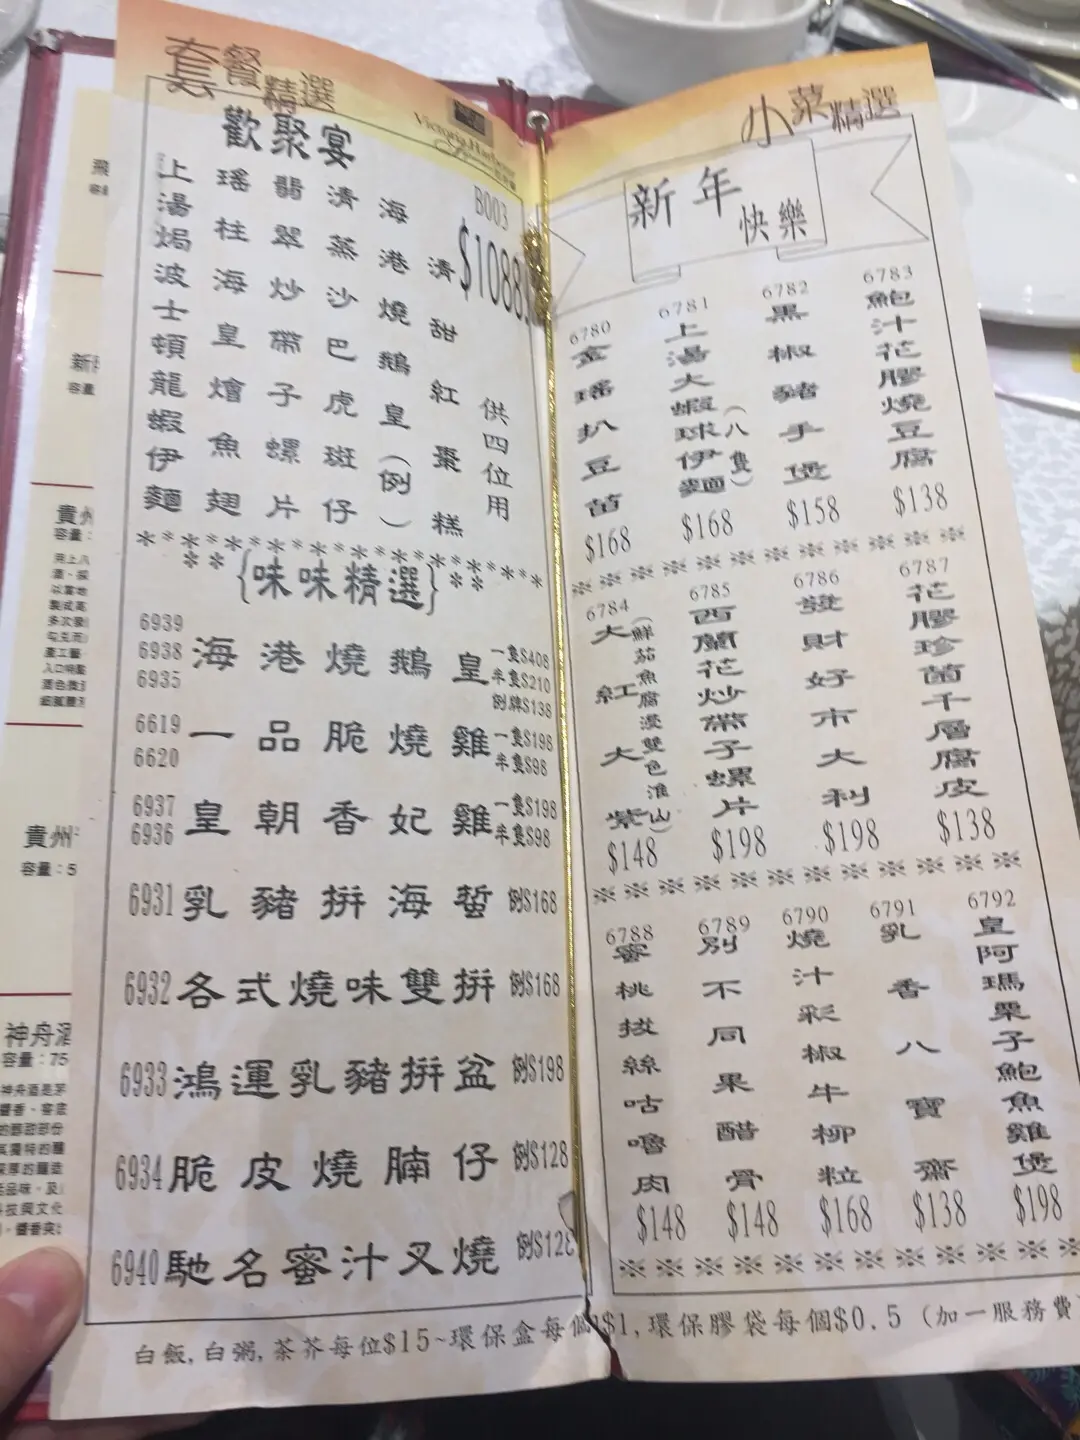 套餐精選
Victoria Harbour
歡聚宴
B003
$1088
上湯焗波士頓龍蝦伊麵
瑤柱海皇燴魚翅
翡翠炒帶子螺片
清蒸沙巴虎斑仔
海港燒鵝皇(例)
清甜紅棗糕
供四位用
{味味精選}
6939
6938
6935
海港燒鵝皇
一隻$408
半隻$210
例牌$138
6619
6620
一品脆燒雞
一隻$198
半隻$98
6937
6936
皇朝香妃雞
一隻$198
半隻$98
6931 乳豬拼海蜇 例$168
6932 各式燒味雙拼 例$168
6933 鴻運乳豬拼盆 例$198
6934 脆皮燒腩仔 例$128
6940 馳名蜜汁叉燒 例$128
小菜精選
新年快樂
6780
金瑤扒豆苗
$168
6781
上湯大蝦球伊麵(八隻)
$168
6782
黑椒豬手煲
$158
6783
鮑汁花膠燒豆腐
$138
6784
大紅大紫
(鮮茄魚腐浸雙色淮山)
$148
6785
西蘭花炒帶子螺片
$198
6786
發財好市大利
$198
6787
花膠珍菌千層腐皮
$138
6788
蜜桃拔絲咕嚕肉
$148
6789
別不同果醋骨
$148
6790
燒汁彩椒牛柳粒
$168
6791
乳香八寶齋
$138
6792
皇阿瑪栗子鮑魚雞煲
$198
白飯,白粥,茶芥每位$15~環保盒每個$1,環保膠袋每個$0.5 (加一服務費
貴州
容量:5
神舟酒
容量:75